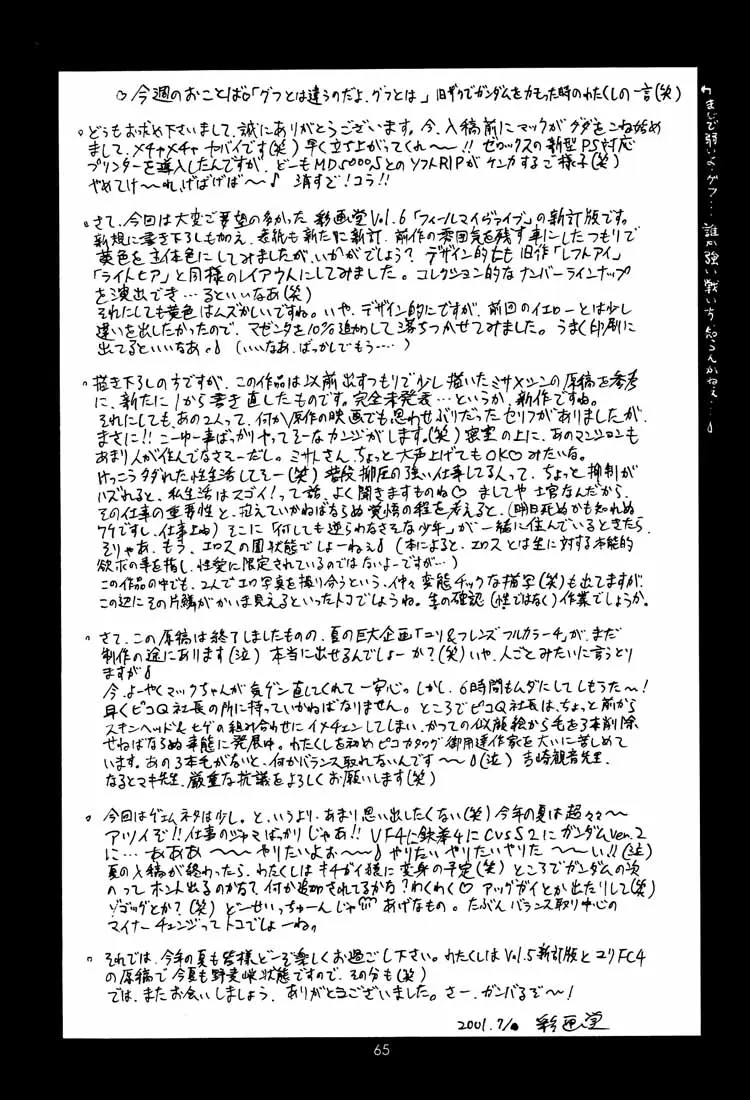 ♡今週のおことば♡「グフとは違うのだよ、グフとは」旧ザクでガンダムをカモった時のわたくしの一言(笑)
。どうもお求め下さいまして、誠にありがとうございます。今、入稿前にマックがグダをこね始め
まして、メチャメチャヤバイです(笑)早く立ち上がってくれ〜〜!!ゼロックスの新型PS対応
プリンターを導入したんですが、どーもMD5000,5とのソフトRIPがケンカするご様子(笑)
やめてけ〜れ、げばげば〜♪消すど!コラ!!
。さて、今回は大変ご要望の多かった彩画堂Vol.6「フィールマイヴァイブ」の新訂版です。
新規に書き下ろしも加え、表紙も新たに新訂、前作の雰囲気を残す事にしたつもりで
黄色を主体色にしてみましたが、いかがでしょう?デザイン的にも旧作「レフトアイ」
「ライトヒア」と同様のレイアウトにしてみました。コレクション的なナンバーラインナップ
を演出でき…るといいなあ(笑)
それにしても黄色はムズかしいですね。いや、デザイン的にですが、前回のイエローとは少し
違いを出したかったので、マゼンタを10%追加して落ちつかせてみました。うまく印刷に
出てるといいなあ。♪(いいなあ、ばっかしでもう‥‥)
。描き下ろしのちですが、この作品は以前出すつもりで少し描いたミサ×シンの原稿を参考
に、新たに1から書き直したものです。完全未発表…というか、新作ですね。
それにしても、あの2人って、何か原作の映画でも思わせぶりだったセリフがありましたが、
まさに!!こーゆー事ばっかりやってそーなカンジがします。(笑)密室の上に、あのマンションも
あまり人が住んでなさそーだし。ミサトさん、ちょっと大声上げてもOK♡みたいな。
けっこうタダれた性生活してそー(笑)普段抑圧の強い仕事してる人って、ちょっと抑制が
ハズれると、私生活はスゴイ!って話、よく聞きますものね♡ましてや士官なんだから、
その仕事の重要性と、抱えていかねばならぬ覚悟の程を考えると、(明日死ぬかも知れぬ
ワケですし、仕事上ぬ)そこに「何しても逆らわなさそな少年」が一緒に住んでいるときたら、
そりゃあ、もう、エロスの園状態でしょーねぇ♪(本によると、エロスとは生に対する本能的
欲求の事を指し、性愛に限定されているのではないよーですが…)
この作品の中でも、2人でエロ写真を撮り合うという、仲々変態チックな描写(笑)も出てますが、
この辺にその片鱗がかいま見えるといったトコでしょうね。生の確認(性ではなく)作業でしょうか。
。さて、この原稿は終了しましたものの、夏の巨大企画「ユリ&フレンズフルカラー4」が、まだ
制作の途にあります(泣)本当に出せるんでしょーか?(笑)いや、人ごとみたいに言うとり
ますが♪
今、よーやくマックちゃんが気ゲン直してくれて一安心。しかし、6時間もムダにしてしもうた〜!
早くピコQ社長の所に持っていかねばなりません。ところでピコQ社長は、ちょっと前から
スキンヘッド&ヒゲの組み合わせにイメチェンしてしまい、かつての似顔絵から毛を3本削除
せねばならぬ事態に発展中。わたくしを初めピコカタログ御用達作家を大いに苦しめて
います。あの3本毛がないと、何かバランス取れないんです〜〜♪(泣)吉崎観音先生、
なるとマキ先生、厳重な抗議をよろしくお願いします(笑)
。今回はゲェムネタは少し。と、いうより、あまり思い出したくない(笑)今年の夏は超々々〜
アツイぞ!!仕事のジャマばっかりじゃあ!!VF4に鉄拳4にCvsS2にガンダムVer.2
に…ああああ〜〜〜やりたいよお〜〜♪やりたいやりたいやりた〜〜い!!(泣)
夏の入稿が終わったら、わたくしはキチガイ猿に変身の予定(笑)ところでガンダムの次
のってホント出るのかな?何か追加されてるかな?わくわく♡アッグガイとか出たりして(笑)
ゾゴッグとか?(笑)どーせいっちゅーんじゃ あげなもの。たぶんバランス取り中心の
マイナーチェンジってトコでしょーね。
。それでは、今年の夏も皆様どーぞ楽しくお過ごし下さい。わたくしはVol.5新訂版とユリFC4
の原稿で今夏も野麦峠状態ですので、その分も(笑)
では、またお会いしましょう、ありがとうございました。さー、ガンバるぞ〜!
2001.7/。彩画堂
65